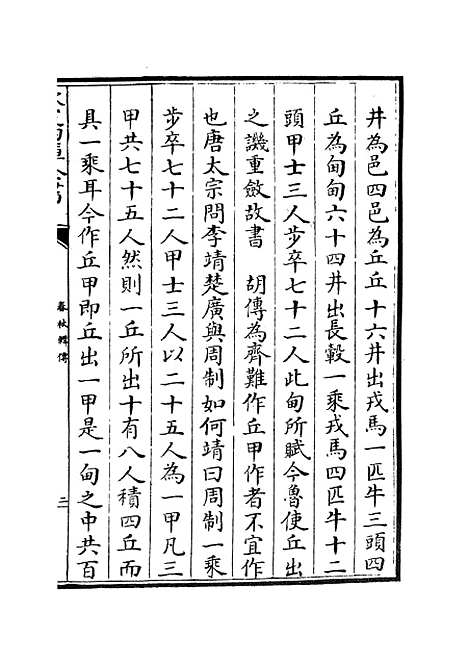 井為邑四邑為丘丘十六井出戎馬一匹牛三頭四
丘為甸甸六十四井出長轂一乘戎馬四匹牛十二
頭甲士三人步卒七十二人此甸所賦今魯使丘出
之譏重斂故書　胡傳為齊難作丘甲作者不宜作
也唐太宗問李靖楚廣與周制如何靖曰周制一乘
步卒七十二人甲士三人以二十五人為一甲凡三
甲共七十五人然則一丘所出十有八人積四丘而
具一乘耳今作丘甲即丘出一甲是一甸之中共百
春秋輯傳
二